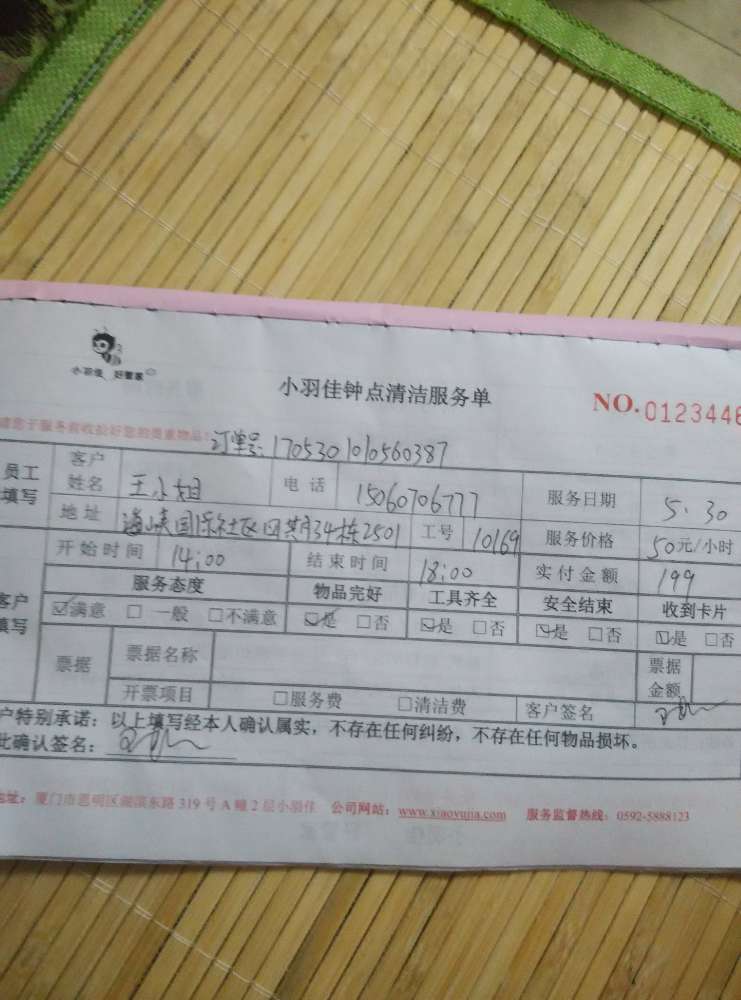 小羽佳 好管家
小羽佳钟点清洁服务单
NO. 0123446
请您于服务前收拾好您的贵重物品!
订单号: 1705301010560387
员工填写
客户姓名 王小姐 电话 15060706777 服务日期 5.30
地址 海峡国际社区四期34栋2501 工号 10169 服务价格 50元/小时
开始时间 14:00 结束时间 18:00 实付金额 199
客户填写
服务态度 物品完好 工具齐全 安全结束 收到卡片
☑满意 □一般 □不满意 ☑是 □否 ☑是 □否 ☑是 □否 ☑是 □否
票据 票据名称 票据金额
开票项目 □服务费 □清洁费 客户签名
户特别承诺:以上填写经本人确认属实,不存在任何纠纷,不存在任何物品损坏。
此确认签名:
地址:厦门市思明区湖滨东路319号A幢2层小羽佳 公司网站:www.xiaoyujia.com 服务监督热线:0592-5888123